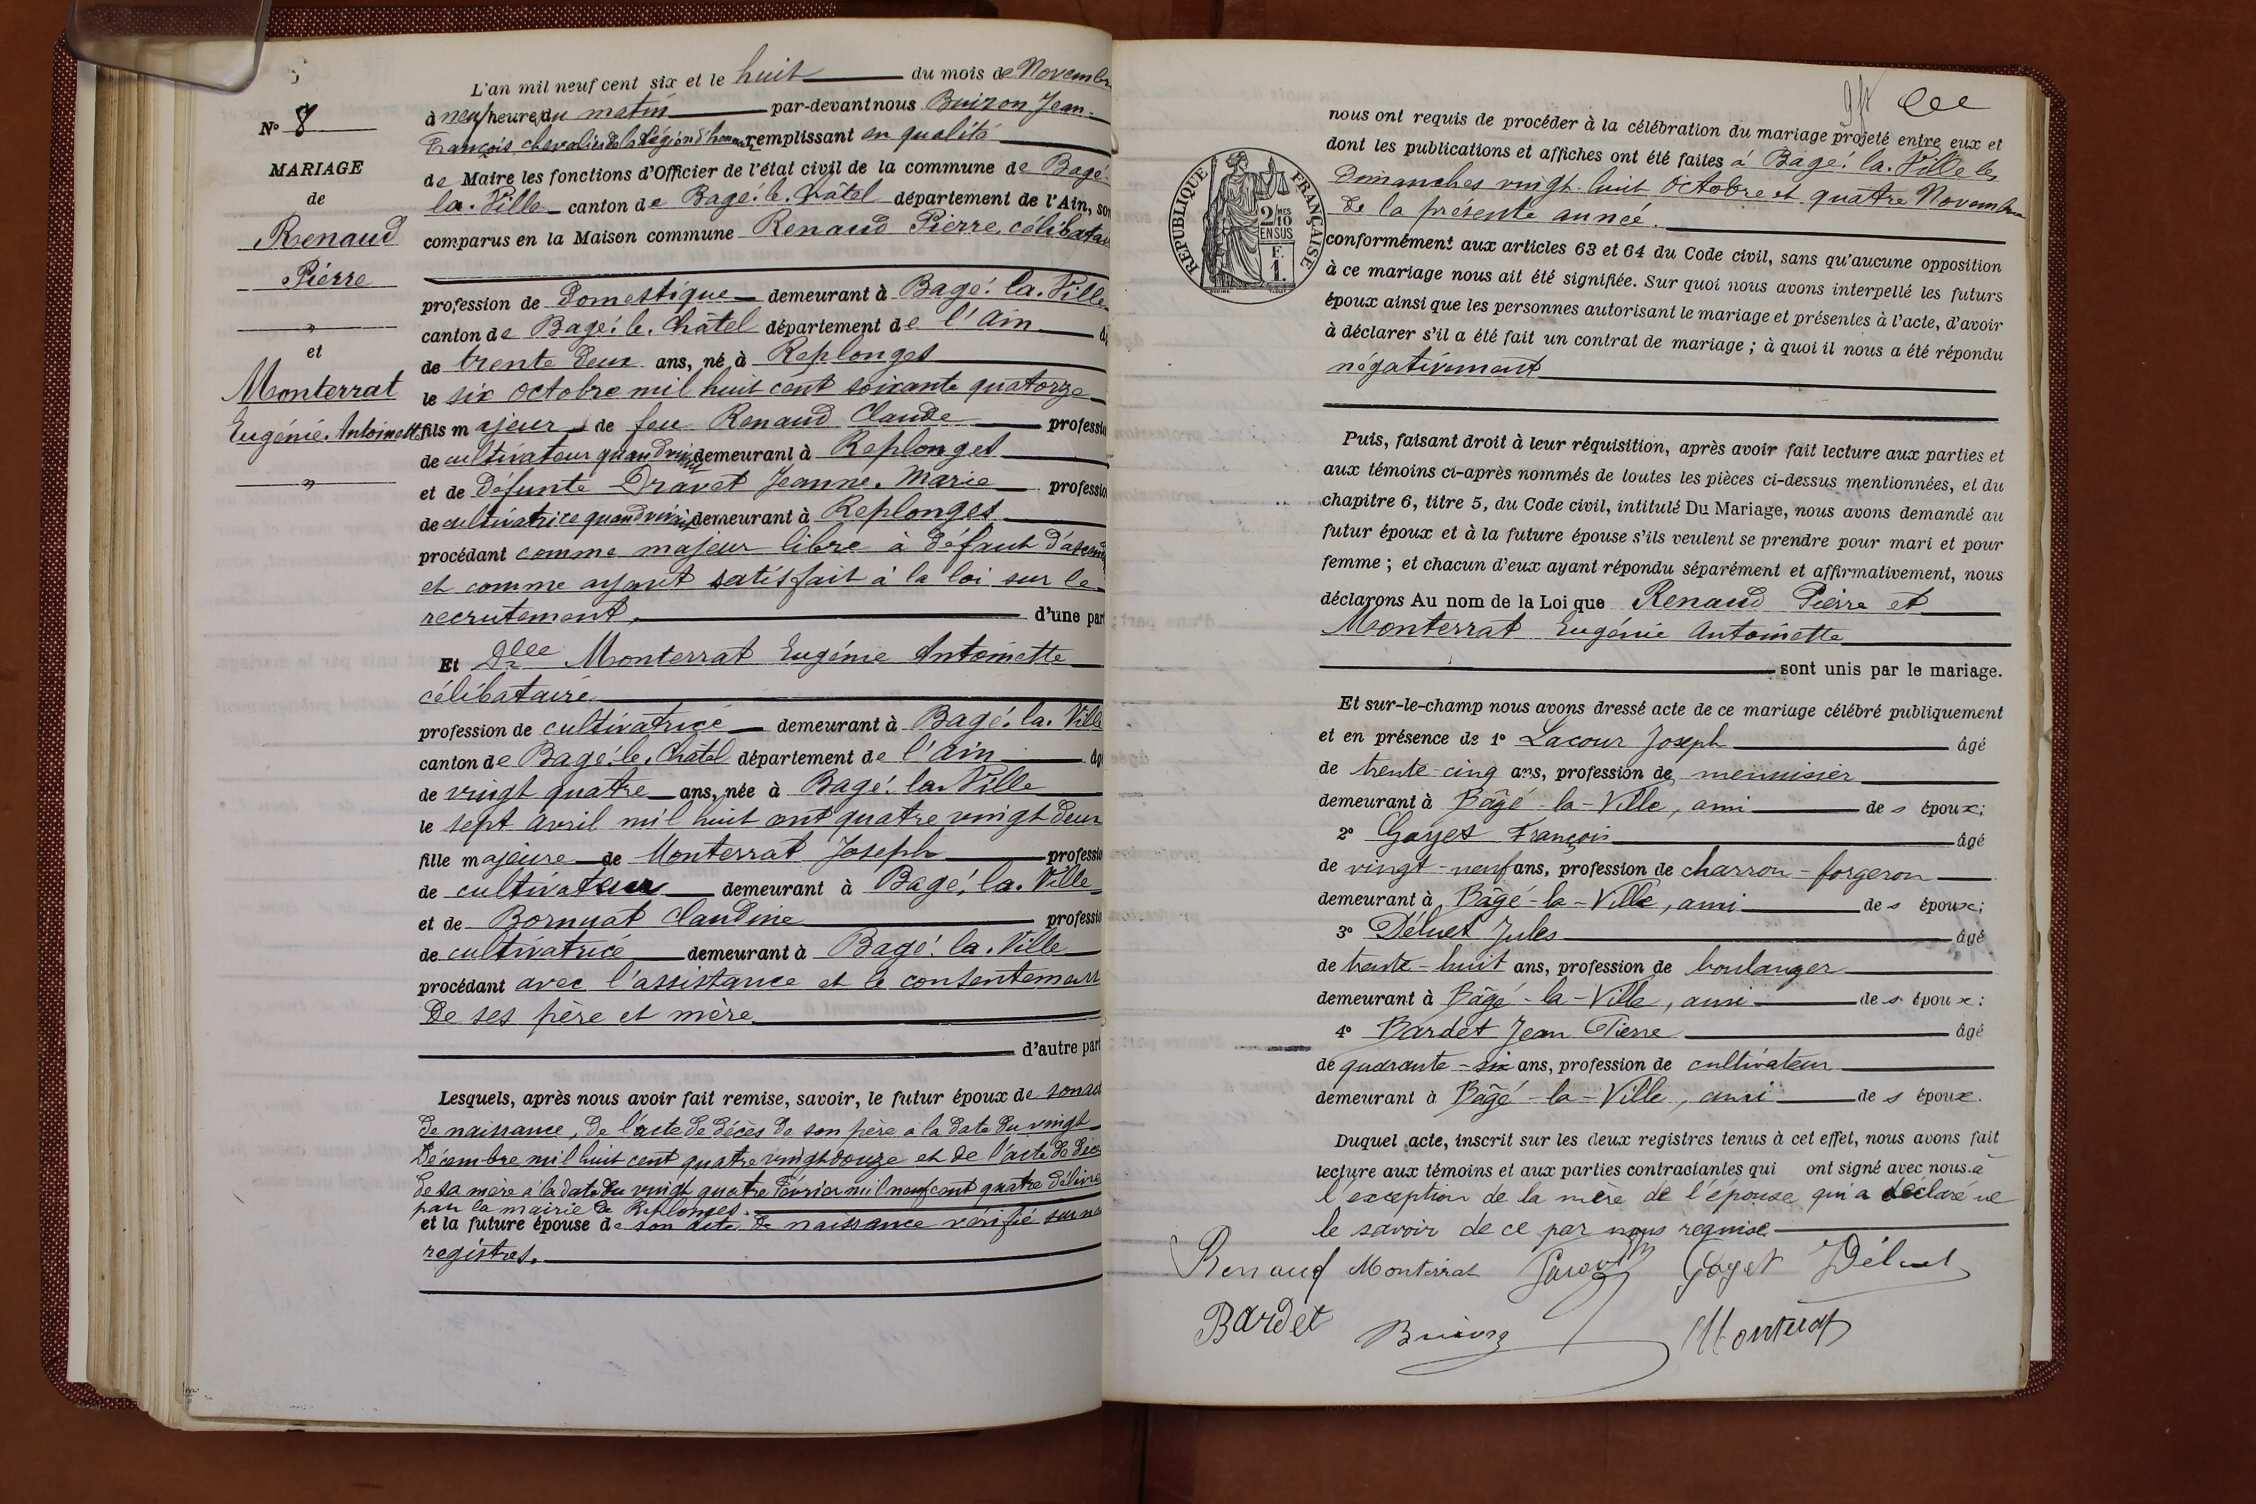 L'an mil neuf cent six et le huit du mois de Novembre
à neuf heures du matin par-devant nous Buizon Jean-
François, chevalier de la Légion d'honneur, remplissant en qualité
de Maire les fonctions d'Officier de l'état civil de la commune de Bagé-
la-Ville canton de Bagé-le-Châtel département de l'Ain, son
comparus en la Maison commune Renaud Pierre, célibataire
N° 8
MARIAGE
de
Renaud
Pierre
"
et
Monterrat
Eugénie-Antoinette
"
profession de Domestique demeurant à Bagé-la-Ville
canton de Bagé-le-Châtel département de l'Ain âg
de trente deux ans, né à Replonges
le six octobre mil huit cent soixante quatorze
fils majeur de feu Renaud Claude professio
de cultivateur quand vivait demeurant à Replonges
et de Défunte Dravet Jeanne-Marie professio
de cultivatrice quand vivait demeurant à Replonges
procédant comme majeur libre à défaut d'ascend
et comme ayant satisfait à la loi sur le
recrutement, d'une part
Et Dlle Monterrat Eugénie Antoinette
célibataire
profession de cultivatrice demeurant à Bagé-la-Ville
canton de Bagé-le-Châtel département de l'Ain âgé
de vingt quatre ans, née à Bagé-la-Ville
le sept avril mil huit cent quatre vingt deux
fille majeure de Monterrat Joseph professio
de cultivateur demeurant à Bagé-la-Ville
et de Bornuat Claudine professio
de cultivatrice demeurant à Bagé-la-Ville
procédant avec l'assistance et le consentement
de ses père et mère
d'autre part
Lesquels, après nous avoir fait remise, savoir, le futur époux de son act
de naissance, de l'acte de décès de son père à la date du vingt
Décembre mil huit cent quatre vingt douze et de l'acte de décès
de sa mère à la date du vingt quatre Février mil neuf cent quatre délivré
par la mairie de Replonges.
et la future épouse de son acte de naissance vérifié sur nos
registres.
nous ont requis de procéder à la célébration du mariage projeté entre eux et
dont les publications et affiches ont été faites à Bagé-la-Ville les
Dimanches vingt-huit Octobre et quatre Novembre
de la présente année.
RÉPUBLIQUE FRANÇAISE
2/10 MES
EN SUS
F.
1.
conformément aux articles 63 et 64 du Code civil, sans qu'aucune opposition
à ce mariage nous ait été signifiée. Sur quoi nous avons interpellé les futurs
époux ainsi que les personnes autorisant le mariage et présentes à l'acte, d'avoir
à déclarer s'il a été fait un contrat de mariage ; à quoi il nous a été répondu
négativement
Puis, faisant droit à leur réquisition, après avoir fait lecture aux parties et
aux témoins ci-après nommés de toutes les pièces ci-dessus mentionnées, et du
chapitre 6, titre 5, du Code civil, intitulé Du Mariage, nous avons demandé au
futur époux et à la future épouse s'ils veulent se prendre pour mari et pour
femme ; et chacun d'eux ayant répondu séparément et affirmativement, nous
déclarons Au nom de la Loi que Renaud Pierre et
Monterrat Eugénie Antoinette
sont unis par le mariage.
Et sur-le-champ nous avons dressé acte de ce mariage célébré publiquement
et en présence de 1° Lacour Joseph âgé
de trente-cinq ans, profession de menuisier
demeurant à Bâgé-la-Ville, ami des époux;
2° Goyet François âgé
de vingt-neuf ans, profession de charron-forgeron
demeurant à Bâgé-la-Ville, ami des époux;
3° Déluet Jules âgé
de trente-huit ans, profession de boulanger
demeurant à Bâgé-la-Ville, ami des époux:
4° Bardet Jean Pierre âgé
de quarante-six ans, profession de cultivateur
demeurant à Bâgé-la-Ville, ami des époux.
Duquel acte, inscrit sur les deux registres tenus à cet effet, nous avons fait
lecture aux témoins et aux parties contractantes qui ont signé avec nous à
l'exception de la mère de l'épouse qui a déclaré ne
le savoir de ce par nous requise
Renaud Monterrat Goyet Déluet
Bardet Buizon Monterrat